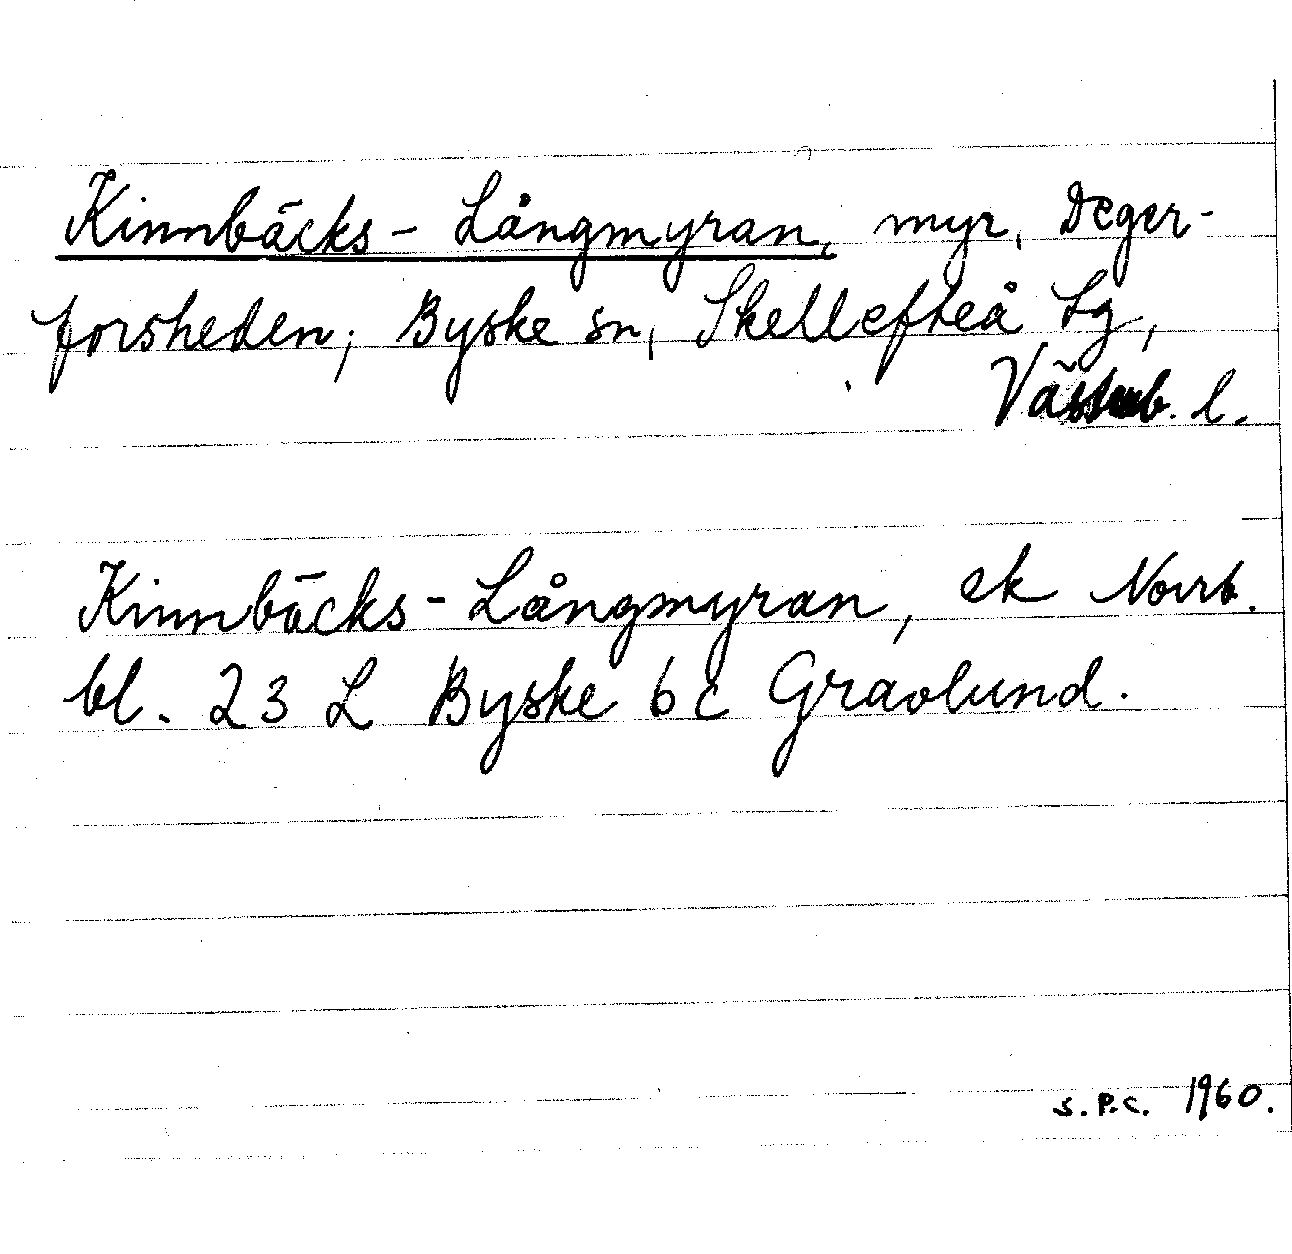 Kinnbäcks-Långmyran, myr, Deger-
forsheden, Byske sn, Skellefteå tg,
Västerb. l.
Kinnbäcks-Långmyran, ek Norrb.
bl. 23 L Byske 6 c Gravlund.
S.P.C. 1960.